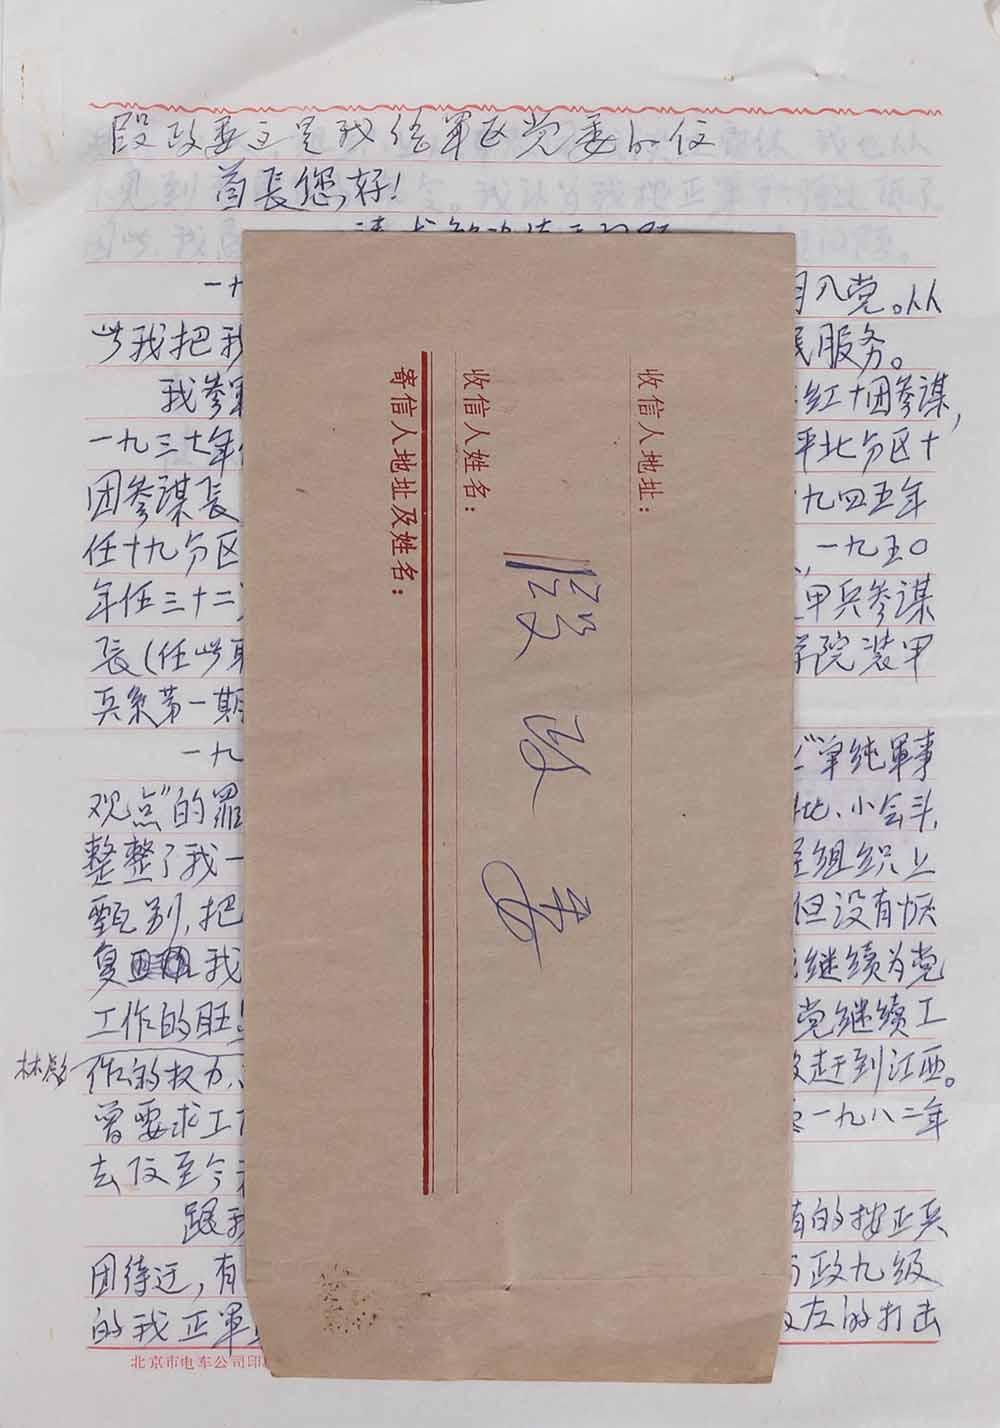 段政委这是我给军区党委的信
首长您好！
一十
月入党。从
此我把我
民服务。
我参军
红十团参谋，
一九三七年
平北分区十
团参谋长
九四五年
任十九分区
，一九五〇
年任三十二
甲兵参谋
长（任此职
学院装甲
兵系第一期
一九
"单纯軍事
观点"的罪
批、小会斗，
整整了我一
组织上
甄别，把
但没有恢
复 我
继续为党
工作的旺
党继续工
林彪
作的权力、
赶到江西。
曾要求工
一九八二年
去信至今
跟我
有的按正兵
团待迂，有
政九级
的我正軍
左的打击
北京市电车公司印
收信人地址：
收信人姓名：
段政委
寄信人地址及姓名：